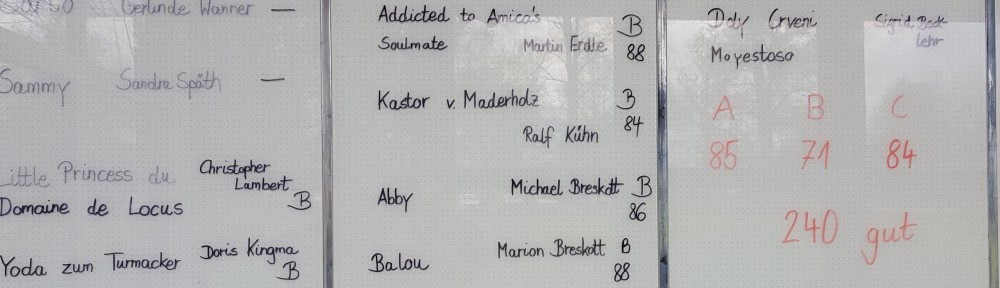 Gerlinde Wanner —
Sammy Sandra Späth —
Little Princess du Christopher Lambert
Domaine de Locus B
Yoda zum Turmacker Doris Kingma
B
Addicted to Amica's B
Soulmate Martin Erdle 88
Kastor v. Maderholz B
Ralf Kühn 84
Abby Michael Breskott B
86
Balou Marion Breskott B
88
Doly Crveni Sigrid Beck-
lehr
Moyestoso
A B C
85 71 84
240 gut